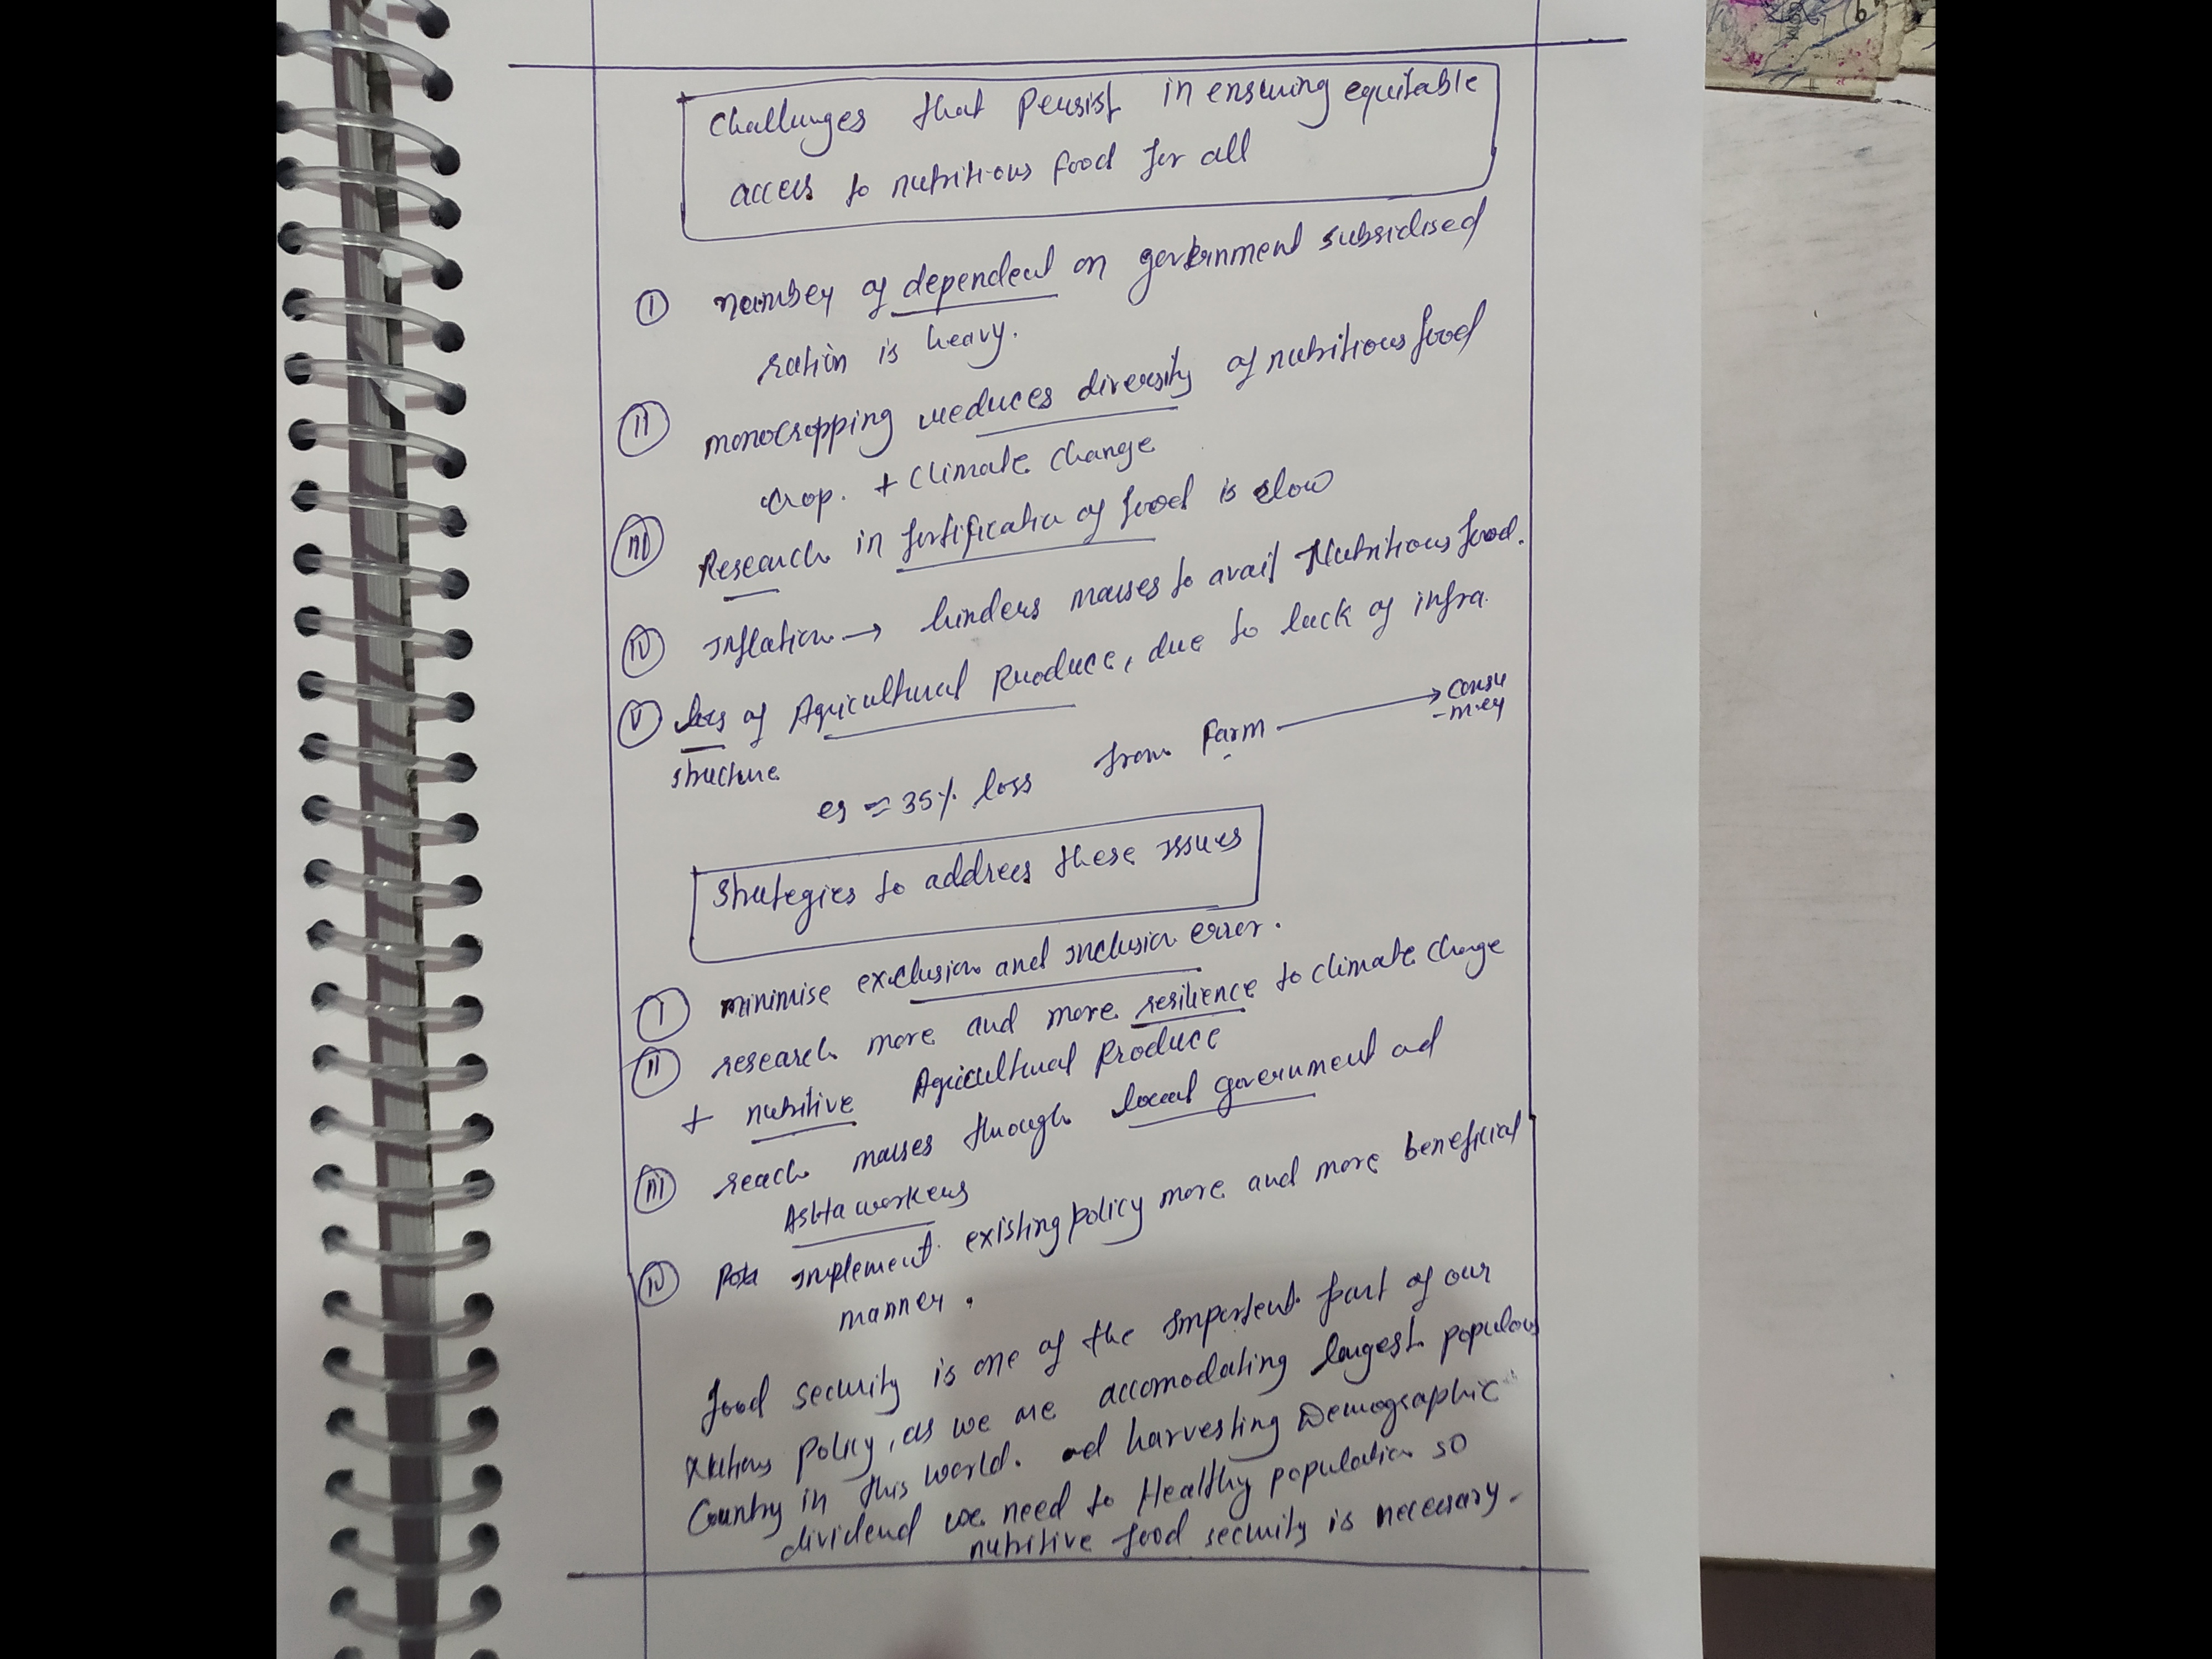 Challenges that Persist in ensuring equitable
access to nutritious food for all
I number of dependent on government subsidised
ration is heavy.
II monocropping reduces diversity of nutritious food
crop. + climate change
III Research in fortification of food is slow
IV Inflation → hinders masses to avail Nutritious food.
V loss of Agricultural Produce, due to lack of infra
structure
eg ≈ 35% loss from Farm → consu
-mer
Strategies to address these issues
I minimise exclusion and inclusion error.
II research more and more resilience to climate change
+ nutritive Agricultural Produce
III reach masses through local government and
ASHA workers
IV implement existing policy more and more beneficial
manner.
Food security is one of the important part of our
Nations policy, as we are accomodating largest populous
Country in this world. and harvesting Demographic
dividend we need to Healthy population so
nutritive food security is necessary.